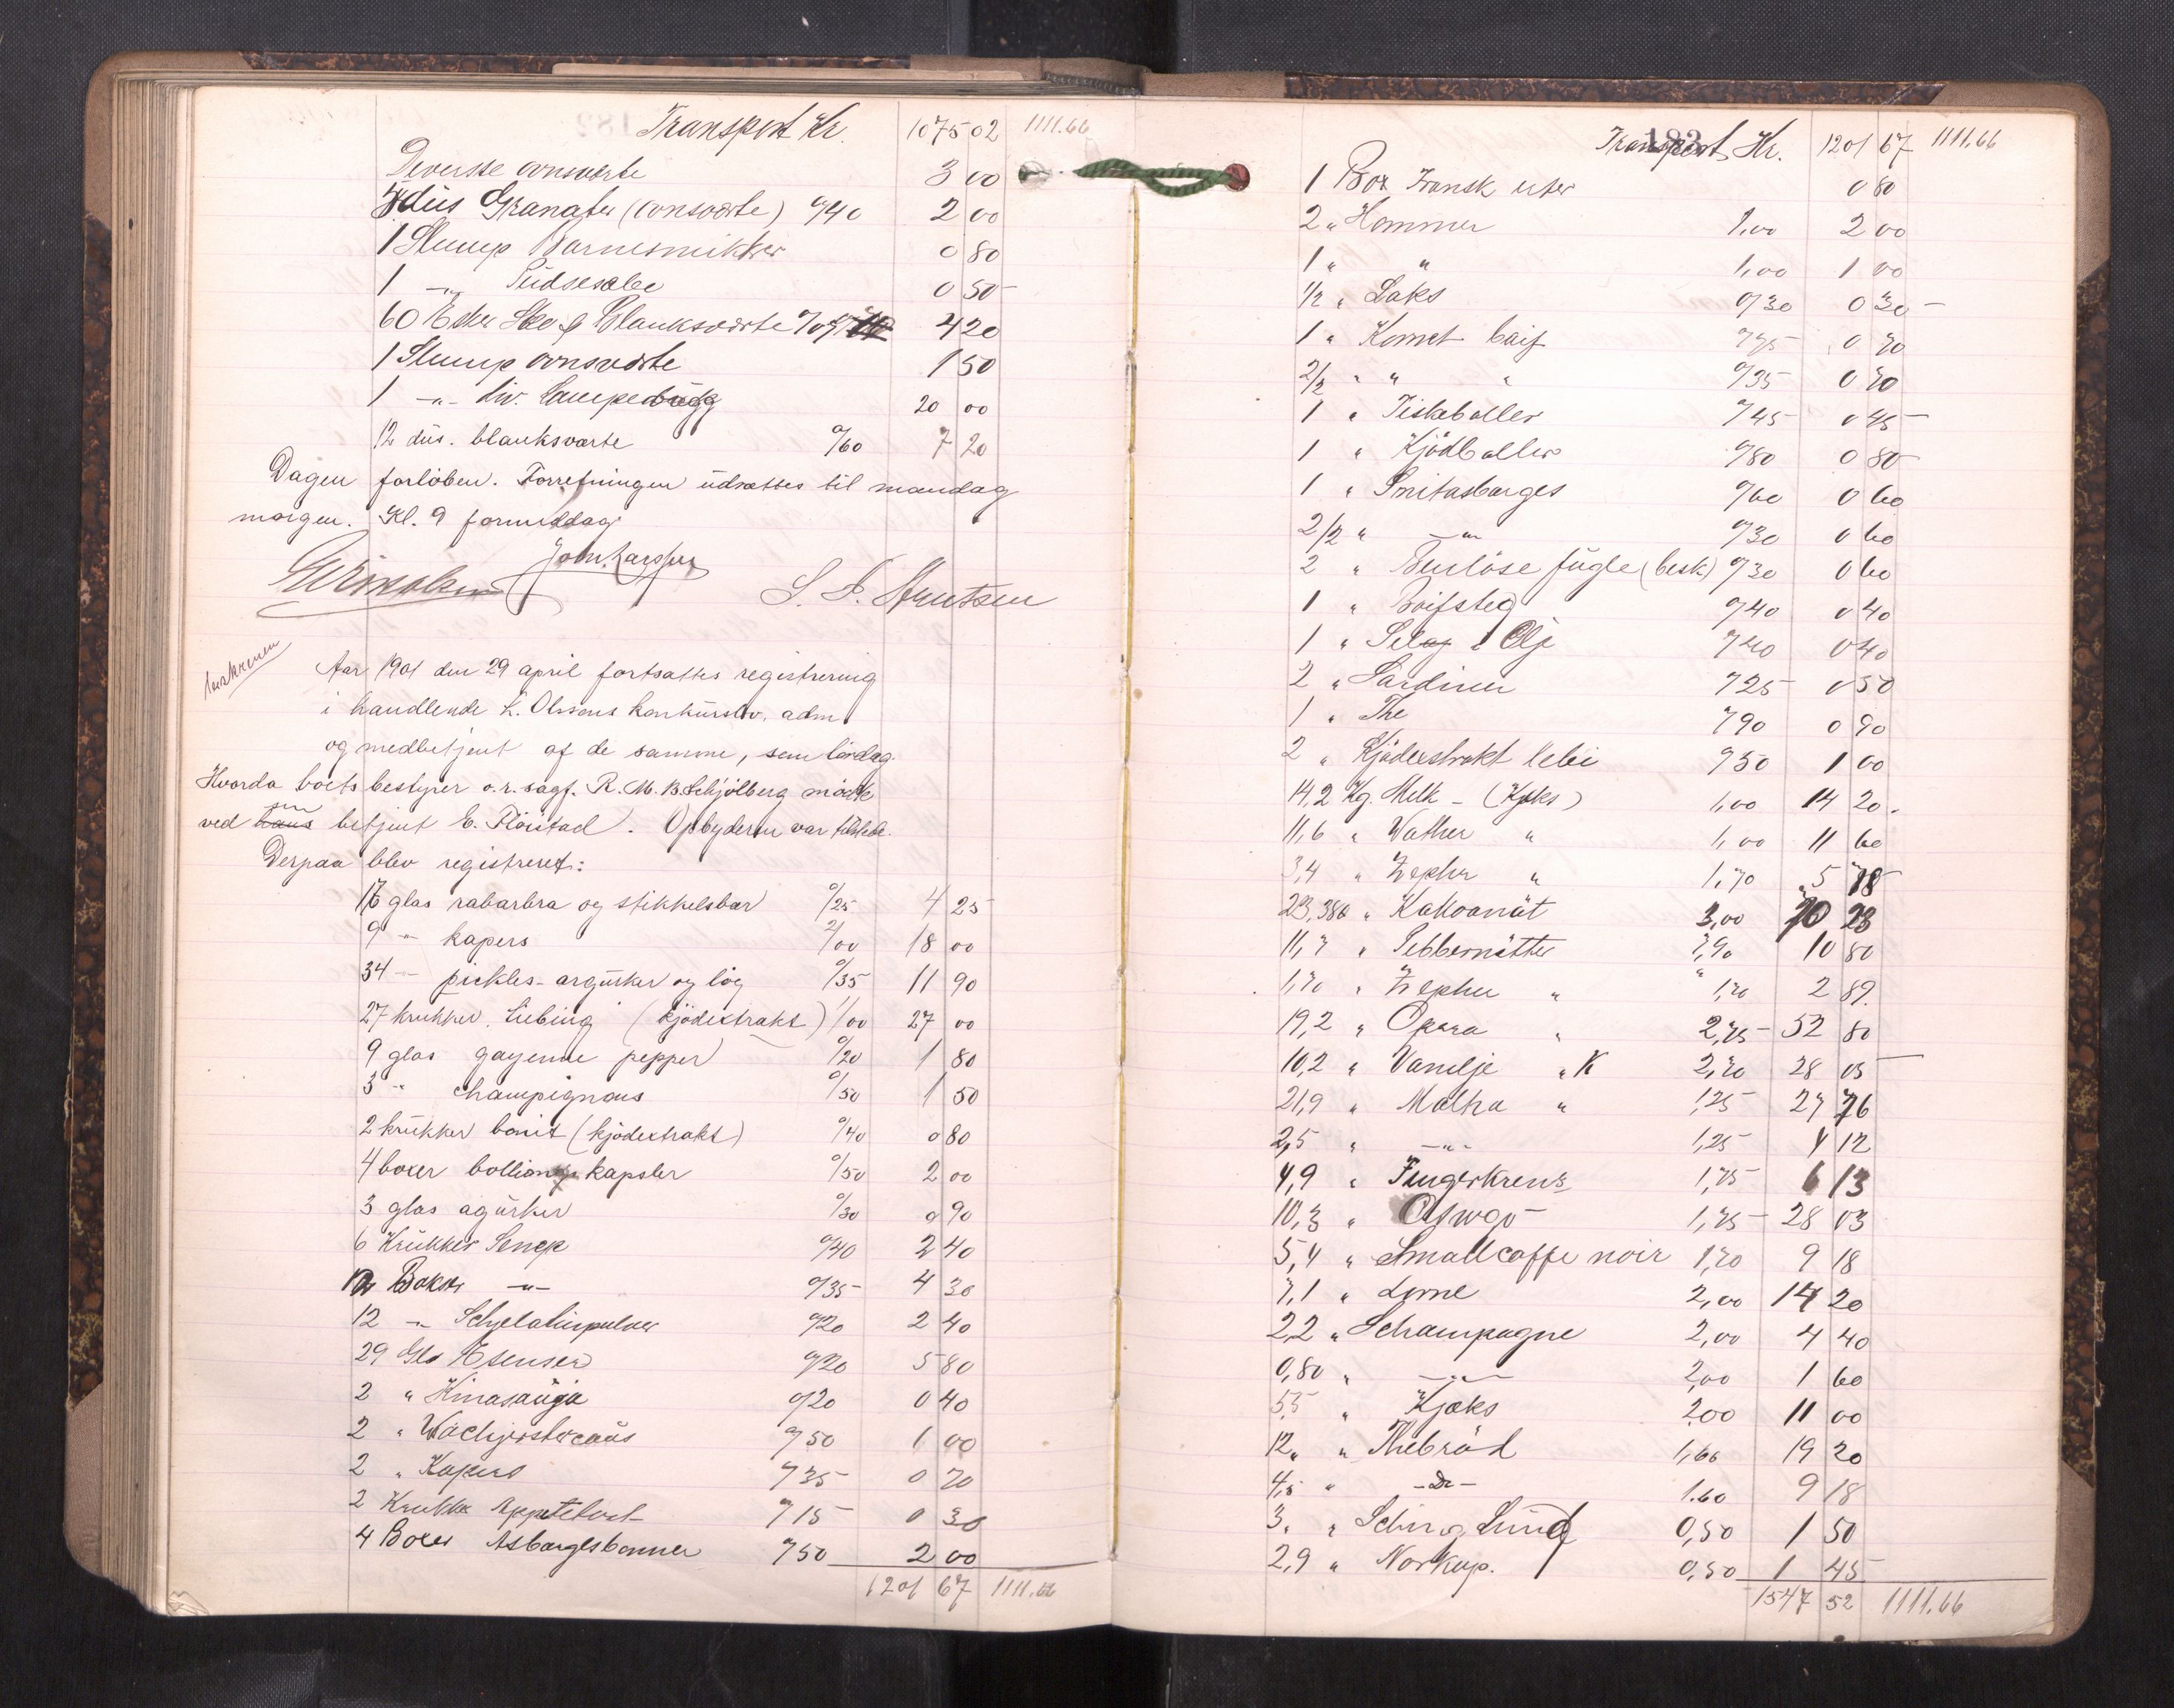 Transport Kr. 1075 02 1111.66
Deverse ovnsvärte 3 00
5 düs Granater (ovnsvärte) 0/40 2 00
1 Slump Barnesmikker 0 80
1 -"- Püdsesalve 0 50
60 Esker Sko & Blanksvärte 4 20
1 Slump ovnsvärte 1 50
1 -"- div. Lampe 20 00
12 düs. blanksvärte 0/60 7 20
Dagen forløben. Forretningen üdsættes til mandag
morgen. Kl. 9 formiddag
John Larssen
Aar 1901 den 29 april fortsattes registrering
i handlende L. Olssens konkürsbo, adm.
og medbetjent af de samme, som lördag.
Hvorda boets bestyrer o.r.sagf. R. M. B. Schjölberg mödte
ved sin betjent E. Flörstad. Opbyderen var tilstede.
Derpaa blev registreret:
17 glas rabarbra og stikkelsbær 0/25 4 25
9 -"- kapers 2/00 18 00
34 -"- pickles- argürker og lög 0/35 11 90
27 krukker Liebing (kjödextrakt) 1/00 27 00
9 glas gayenne pepper 0/20 1 80
3 -"- champignons 0/50 1 50
2 krükker bonit (kjödextrakt) 0/40 0 80
4 boxer bollions kapsler 0/50 2 00
3 glas agürker 0/30 0 90
6 Krükker Senep 0/40 2 40
12 Bokser -"- 0/35 4 30
12 -"- Schjelatinpulver 0/20 2 40
29 Gls Esenser 0/20 5 80
2 " Kinasauja 0/20 0 40
2 " 0/50 1 00
2 " Kapers 0/35 0 70
2 Krukke Appetitost 0/15 0 30
4 Boxer Asbargesbonner 0/50 2 00
1201 67 1111.66
183
Transport Kr. 1201 67 1111.66
1 Box Fransk erter 0 80
2 " Hommer 1,00 2 00
1 " " 1,00 1 00
1/2 " Laks 0/30 0 30
1 " Kornet baif 0 70
2/2 " " " 0/35 0 70
1 " Fiskeboller 0/45 0 45
1 " Kjödboller 0/80 0 80
1 " Snitasbarges 0/60 0 60
2/2 " -"- 0/30 0 60
2 " Benlöse fügle (besk) 0/30 0 60
1 " Boifsteg 0/40 0 40
1 " i Olje 0/40 0 40
2 " Sardiner 0/25 0 50
1 " The 0/90 0 90
2 " Kjödexstrakt Lebi 0/50 1 00
14,2 Kg. Melk - (Kjeks) 1,00 14 20
11,6 " Wather " 1,00 11 60
3,4 " Zephir " 1,70 5 78
23,380 " Kakoanüt 3,00 70 23
11,7 " Pebbernötter 10 80
1,70 " Zephir " 1,70 2 89
19,2 " Opera " 2,75 52 80
10,2 " Vanilje " K 2,70 28 05
21,9 " Maltha " 1,25 27 76
2,5 " -"- 1,25 4 12
4,9 " Fingerkrens 1,25 6 13
10,3 " Oswgo 1,75 28 03
5,4 " Small caffe noir 1,70 9 18
7,1 " Lorne 2,00 14 20
2,2 " Schampagne 2,00 4 40
0,80 " -"- 2,00 1 60
5,5 " Kjæks 2,00 11 00
12 " Thebröd 1,60 19 20
4,5 " - Do - 1.60 9 18
3 " 0,50 1 50
2,9 " Norkap. 0,50 1 45
1547 52 1111.66